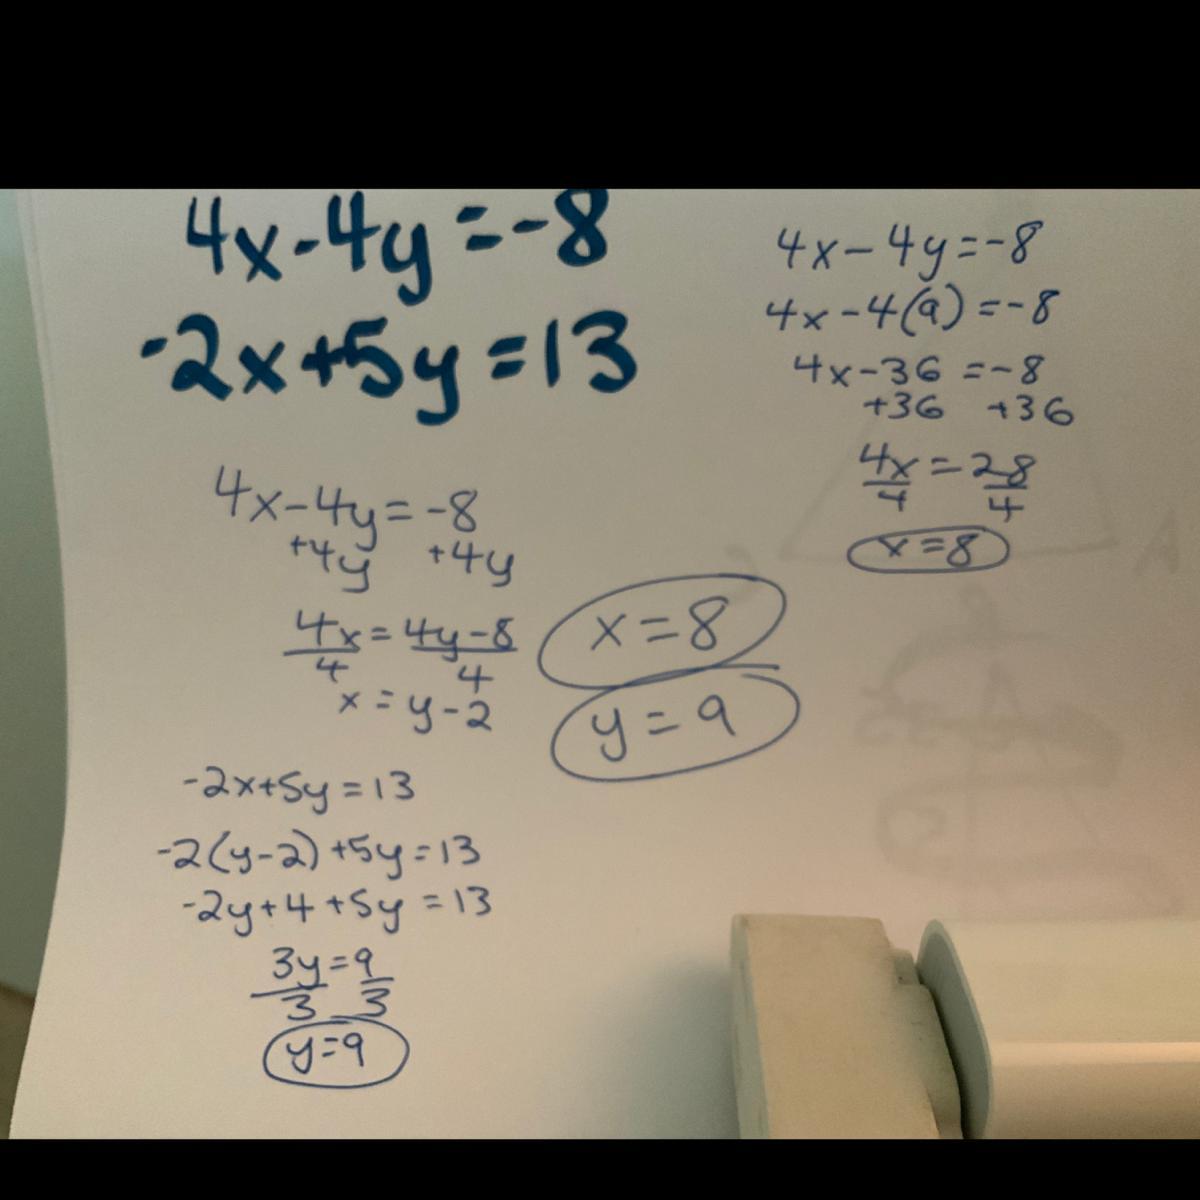 4x-4y=-8
-2x+5y=13
4x-4y=-8
+4y +4y
4x=4y-8
4 4
x=y-2
-2x+5y=13
-2(y-2)+5y=13
-2y+4+5y=13
3y=9
3 3
y=9
x=8
y=9
4x-4y=-8
4x-4(9)=-8
4x-36=-8
+36 +36
4x=28
4 4
x=8